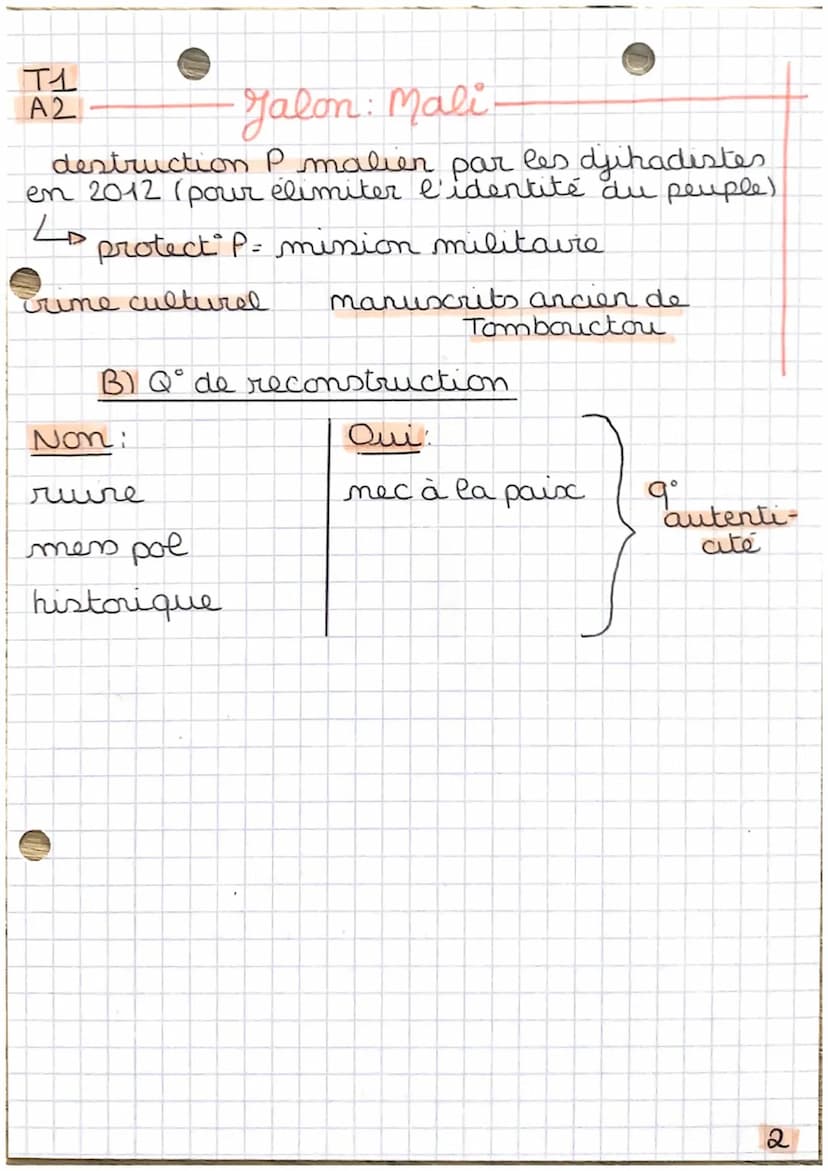 T1
A2
Jalon: Mali
destruction P malien par les djihadistes
en 2012 (pour élimiter l'identité du peuple)
↳ protect° P = mission militaire
crime culturel manuscrits ancien de
Tombouctou
B) Q° de reconstruction
Non: Oui:
ruine nec à la paix
mess pol
historique
q°
autenti-
cité
2